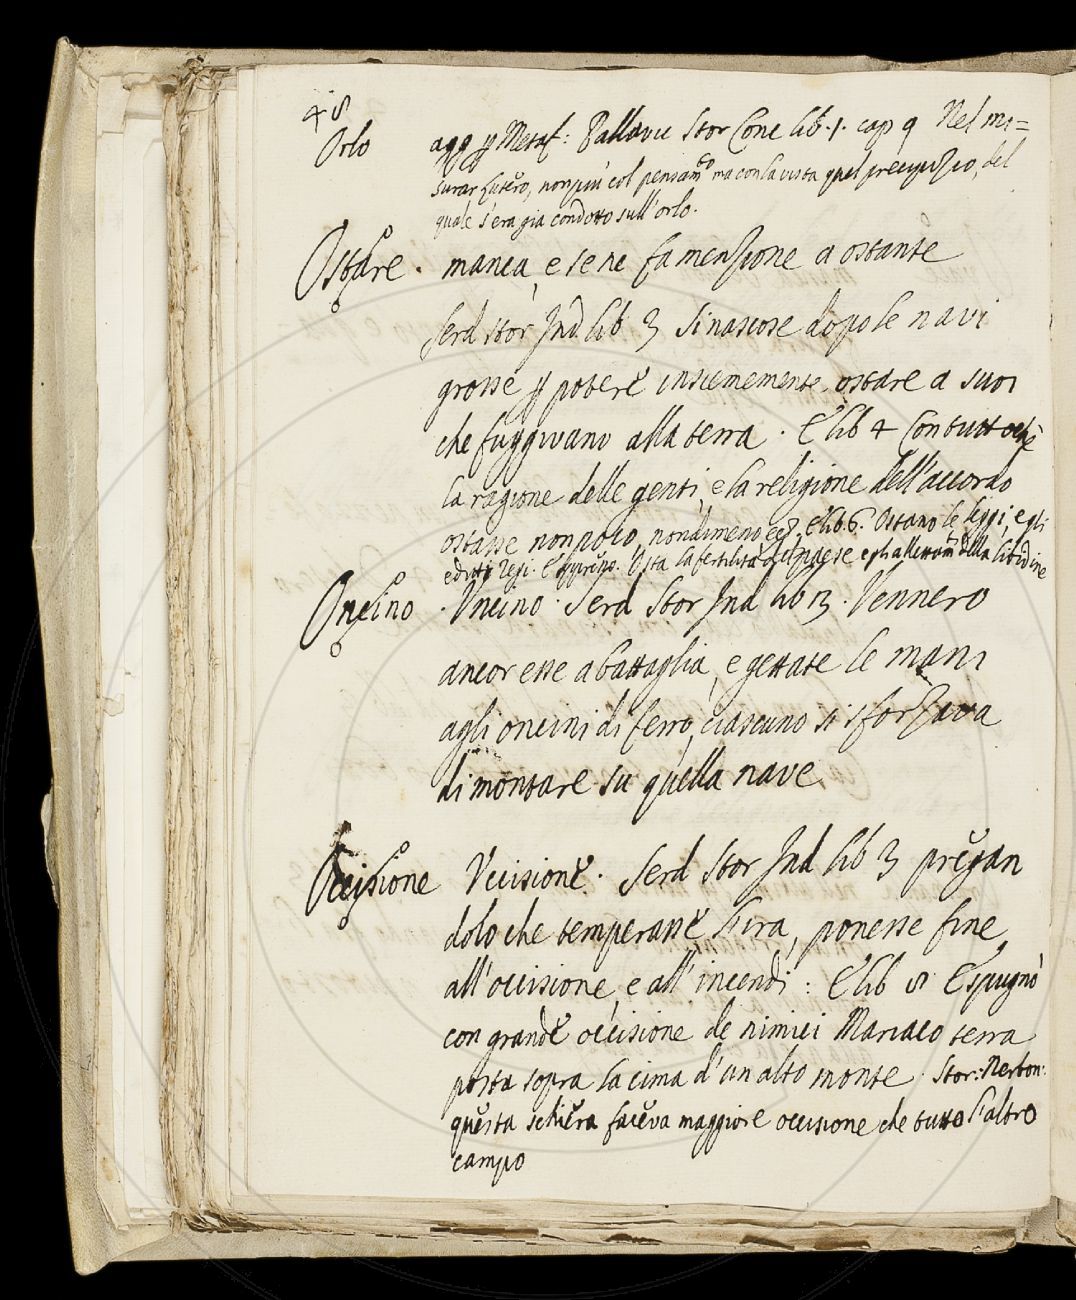 48
Orlo agg p Metaf: Pallavic Stor Conc lib. 1. cap 9 Nel mi=
surar futuro, non più col pensamto ma con la vista quel precipizio, del
quale s'era gia condotto sull'orlo.
Ostare. manca, e se ne fa menzione a ostante
Serd Stor Ind. lib 3 Si nascose dopo le navi
grosse p potere insiememente ostare a suoi
che fuggivano alla terra. E lib 4 Con tutto che
la ragione delle genti, e la religione dell'accordo
ostasse non poco, nondimeno ec. E lib. 6. Ostano le leggi, e gli
editti Regi. E Osta la fertilità del paese e gli allettamti della libidine
Oncino. Uncino. Serd Stor Ind lib 13. Vennero
ancor esse a battaglia, e gettate le mani
agli oncini di ferro, ciascuno si sforzava
di montare su quella nave
Occisione Uccisione. Serd Stor Ind lib 3 pregan
dolo che temperasse l'ira, ponesse fine
all'occisione, e all'incendi: E lib 8 Espugnò
con grande occisione de nimici terra
posta sopra la cima d'un alto monte. Stor: Nerbon:
questa schiera faceva maggiore occisione che tutto l'altro
campo